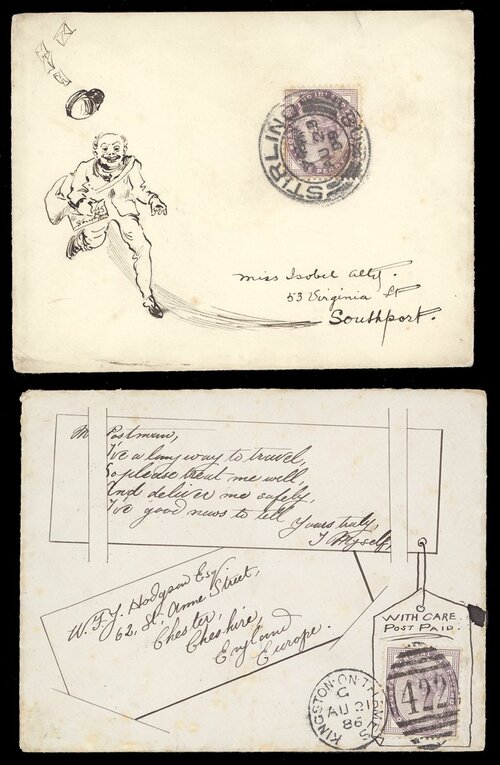 STIRLING
AU 29
Miss Isobel Alty.
53 Virginia St
Southport.
Mr Postman,
I've a long way to travel,
So please treat me well,
And deliver me safely,
I've good news to tell
Yours truly,
I Myself,
W. F. J. Hodgson Esq.
62, St. Anne Street,
Chester,
Cheshire,
England
Europe.
WITH CARE.
POST PAID.
KINGSTON-ON-THAMES
C
AU 21
86
422